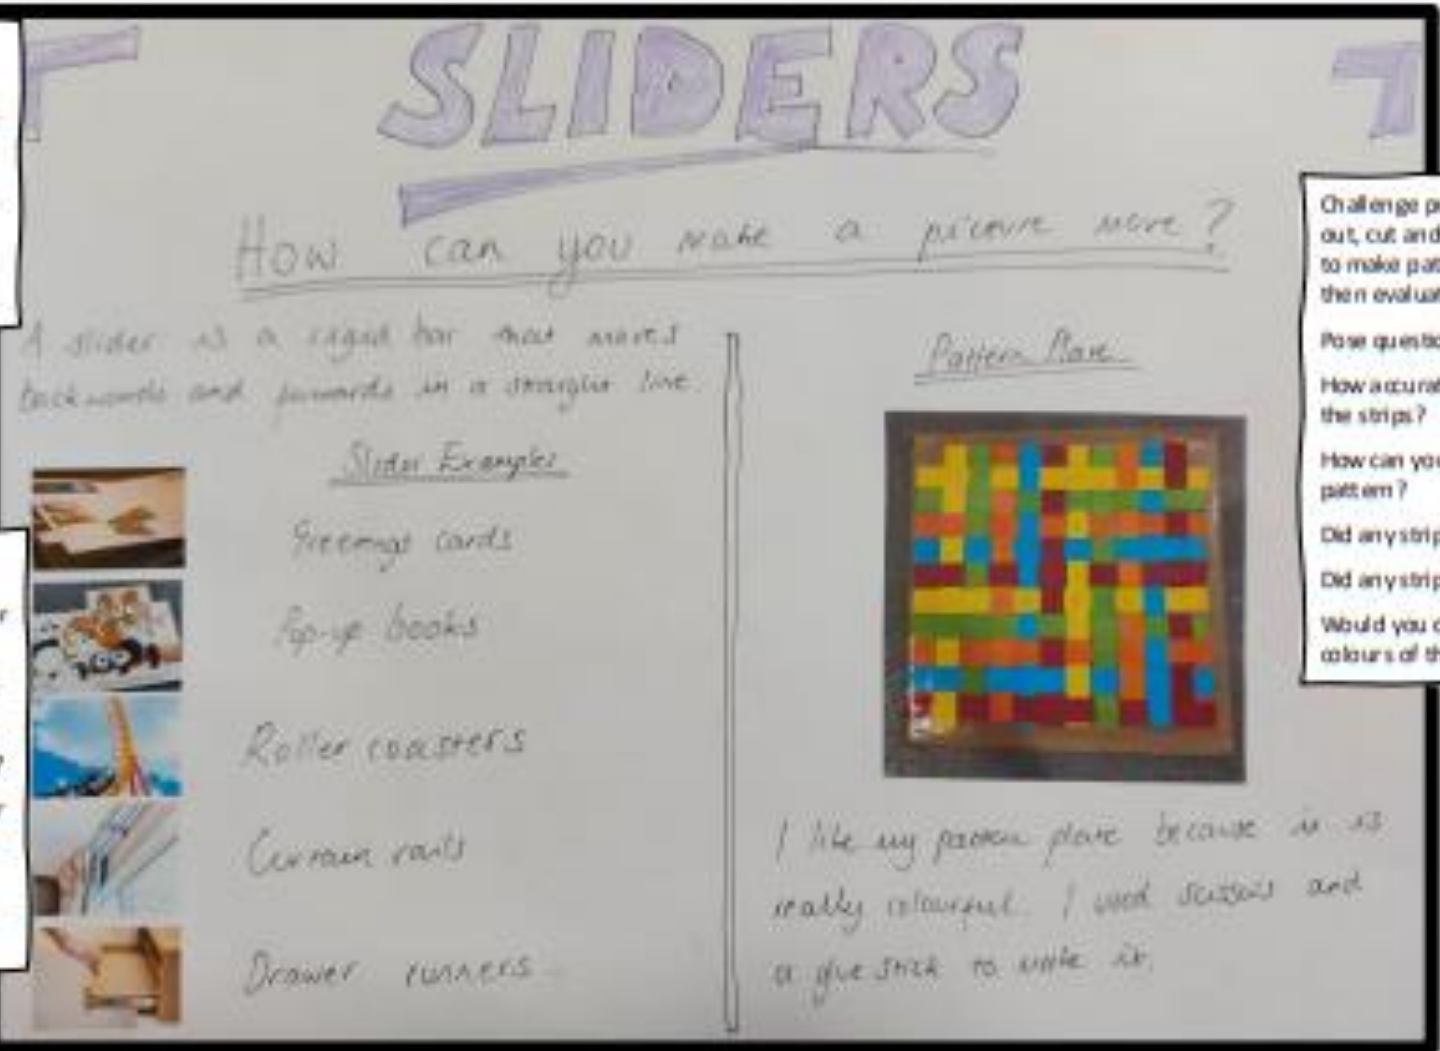 SLIDERS
How can you make a picture move?
A slider is a rigid bar that moves
backwards and forwards in a straight line.
Slider Examples
Greetings cards
Pop-up books
Roller coasters
Curtain rails
Drawer runners
Pattern Plate
I like my pattern plate because it is
really colourful. I used scissors and
a glue stick to make it.
Challenge
out, cut and
to make
then
Pose
How
the strips?
How can
pattern?
Did any
Did any
Would you
colours of